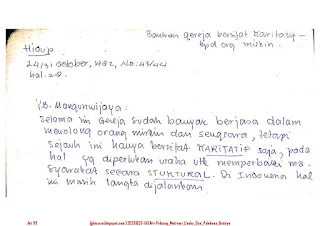 Bantuan gereja bersifat KARITATIF –
kpd org miskin.
Hidup
24/31 October, 1982, No: 43/44
hal. 20.
YB. Mangunwijaya:
Selama ini Gereja sudah banyak berjasa dalam
menolong orang miskin dan sengsara, tetapi
sejauh ini hanya bersifat KARITATIF saja, pada
hal yg diperlukan usaha utk memperbaiki ma-
syarakat secara STUKTURAL. Di Indonesia hal
ini masih langka dijalankan
Art 99